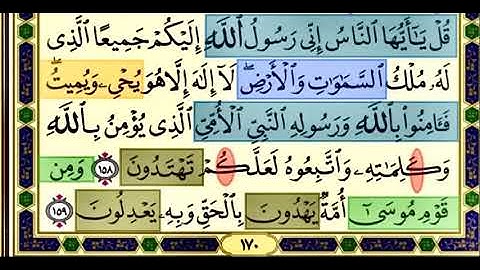 قُلْ يَٰٓأَيُّهَا ٱلنَّاسُ إِنِّى رَسُولُ ٱللَّهِ إِلَيْكُمْ جَمِيعًا ٱلَّذِى
لَهُۥ مُلْكُ ٱلسَّمَٰوَٰتِ وَٱلْأَرْضِۖ لَآ إِلَٰهَ إِلَّا هُوَ يُحْىِۦ وَيُمِيتُۖ
فَـَٔامِنُوا۟ بِٱللَّهِ وَرَسُولِهِ ٱلنَّبِىِّ ٱلْأُمِّىِّ ٱلَّذِى يُؤْمِنُ بِٱللَّهِ
وَكَلِمَٰتِهِۦ وَٱتَّبِعُوهُ لَعَلَّكُمْ تَهْتَدُونَ ١٥٨ وَمِن
قَوْمِ مُوسَىٰٓ أُمَّةٌ يَهْدُونَ بِٱلْحَقِّ وَبِهِۦ يَعْدِلُونَ ١٥٩
١٧٠